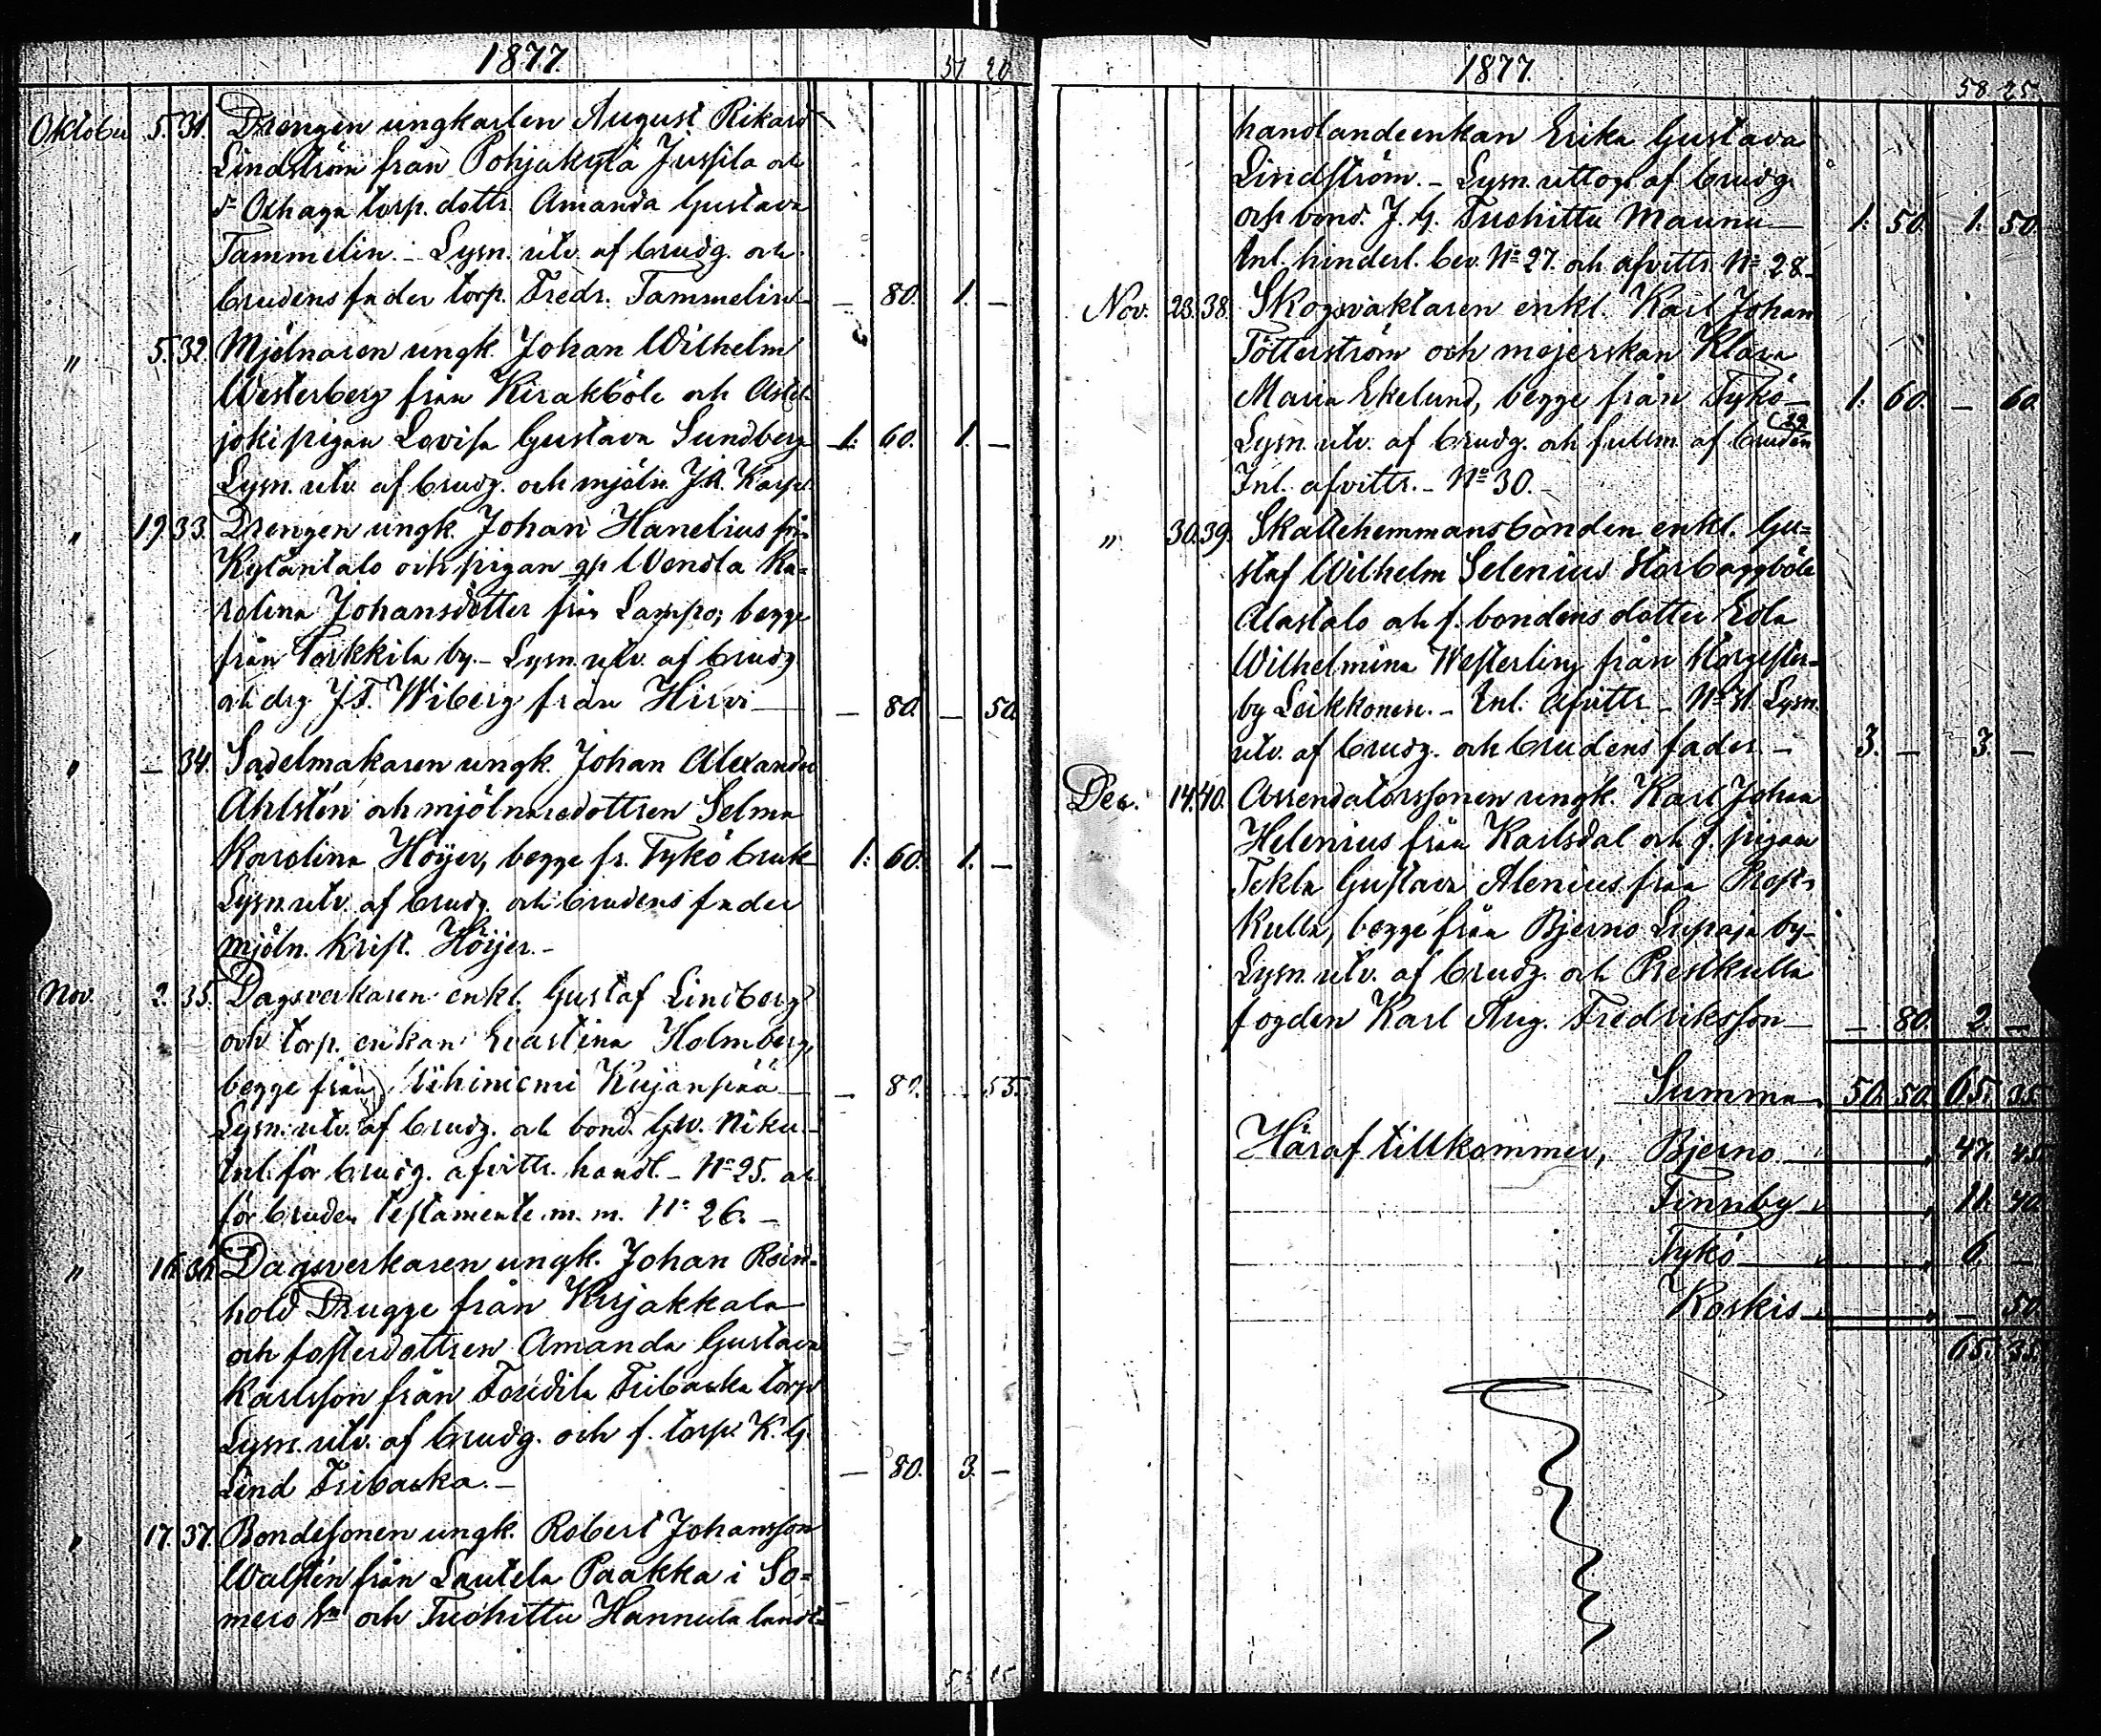 1877.
51 20
Oktober 5. 31. Drengen ungkarlen August Rikard
Lindström från Pohjakylä Jussila och
d:o Oxhaga torp. dottr. Amanda Gustava
Tammelin. – Lysn. utv. af brudg. och
brudens fader torp. Fredr. Tammelin – — 80. 1. —
" 5. 32. Mjölnaren ungk. Johan Wilhelm
Westerberg från Kirakböle och
jokipigan Lovisa Gustava Sundberg 1: 60. 1. —
Lysn. utv. af brudg. och mjöln.
" 19. 33. Drengen ungk. Johan Hanelius fr:
Kytäntalo och pigan Wendla Ka=
rolina Johansdotter från Lampo; begge
från Torkkila by. – Lysn. utv. af brudg.
och drg J. F. Wiberg från Hirvi — — 80. — 50.
" — 34. Sadelmakaren ungk. Johan Alexander
Ahlstén och mjölnaredottren Selma
Karolina Höijer, begge fr. Tykö bruk 1: 60. 1. —
Lysn. utv. af brudg. och brudens fader
mjöln. Krist. Höijer. –
Nov. 2. 35. Dagsverkaren enkl. Gustaf Lindberg
och torp. enkan Evastina Holmberg,
begge från Kujanpää — — 80. 55.
Lysn. utv. af brudg. och bond. Gw. Niku –
Inl. för brudg. afvittr. handl. – No 25. och
för bruden testamente m. m. No 26. –
" 16. 36. Dagsverkaren ungk. Johan Rein=
hold Drugge från Kirjakkala
och fosterdottren Amanda Gustava
Karlsson från Toridila Fribacka torp
Lysn. utv. af brudg. och f. torp. K. G.
Lind Fribacka. – — 80. 3. —
" 17. 37. Bondesonen ungk. Robert Johansson
Walstén från Lautela Paakka i So=
mero S:n och Tuohittu Hannula landt=
1877.
58 25
handlandeenkan Erika Gustava
Lindström. – Lysn. uttog. af brudg.
och bond. J. G. Tuohittu Maunu — 1. 50. 1. 50.
Inl. hinderl. bev. No 27. och afvittr. No 28.
Nov. 23. 38. Skogsvaktaren enkl. Karl Johan
Tötterström och mejerskan Klara
Maria Ekelund, begge från Tykö – 1. 60. — 60.
Lysn. utv. af brudg. och fullm. af bruden (29
Inl. afvittr. – No 30. –
" 30. 39. Skattehemmansbonden enkl. Gu=
staf Wilhelm Selenius Norbaggböle
Alastalo och f. bondens dotter Eda
Wilhelmina Westerling från
by Leikkonen. – Inl. Afvittr – No 31. Lysn.
utv. af brudg. och brudens fader – 3. — 3. —
Dec. 14. 40. Arrendatorssonen ungk. Karl Johan
Helenius från Karlsdal och f. pigan
Tekla Gustava Alenius från Prest=
kulla, begge från Bjerno Lupaja by –
Lysn. utv. af brudg. och Prestkulla
fogden Karl Aug. Fredriksson — — 80. 2. —
Summa 50. 50. 65. 35.
Häraf tillkommer, Bjerno — 47. 45.
Finnby — 11. 40.
Tykö — 6. —
Koskis — — 50.
65. 35.